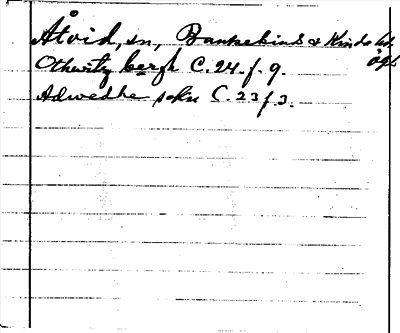 Åtvid, sn, Bankekinds & Kinds hd.
Ögl.
Othwitz bergh C. 24. f. 9.
Adwedhe sokn C. 23 f. 3.